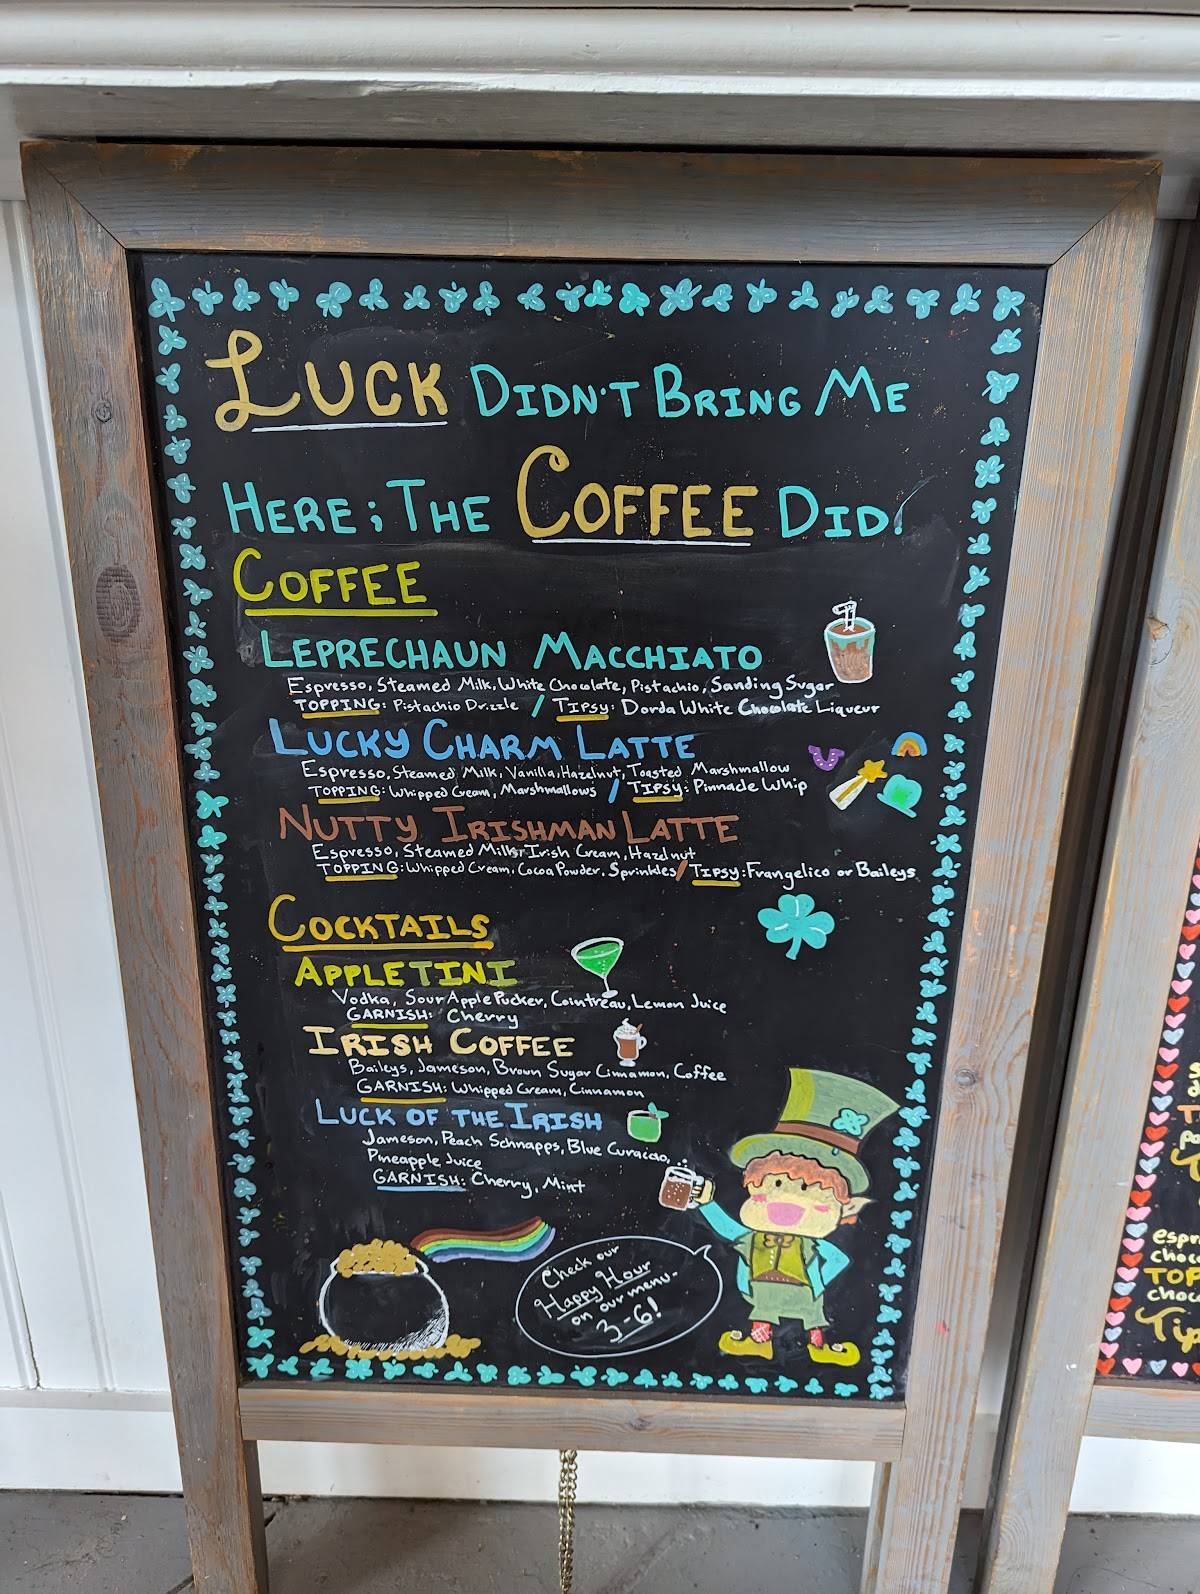 LUCK DIDN'T BRING ME
HERE; THE COFFEE DID!
COFFEE
LEPRECHAUN MACCHIATO
Espresso, Steamed Milk, White Chocolate, Pistachio, Sanding Sugar
TOPPING: Pistachio Drizzle / TIPSY: Dorda White Chocolate Liqueur
LUCKY CHARM LATTE
Espresso, Steamed Milk, Vanilla, Hazelnut, Toasted Marshmallow
TOPPING: Whipped Cream, Marshmallows / TIPSY: Pinnacle Whip
NUTTY IRISHMAN LATTE
Espresso, Steamed Milk, Irish Cream, Hazelnut
TOPPING: Whipped Cream, Cocoa Powder, Sprinkles / TIPSY: Frangelico or Baileys
COCKTAILS
APPLETINI
Vodka, Sour Apple Pucker, Cointreau, Lemon Juice
GARNISH: Cherry
IRISH COFFEE
Baileys, Jameson, Brown Sugar Cinnamon, Coffee
GARNISH: Whipped Cream, Cinnamon
LUCK OF THE IRISH
Jameson, Peach Schnapps, Blue Curacao,
Pineapple Juice
GARNISH: Cherry, Mint
Check our
Happy Hour
on our menu.
3-6!